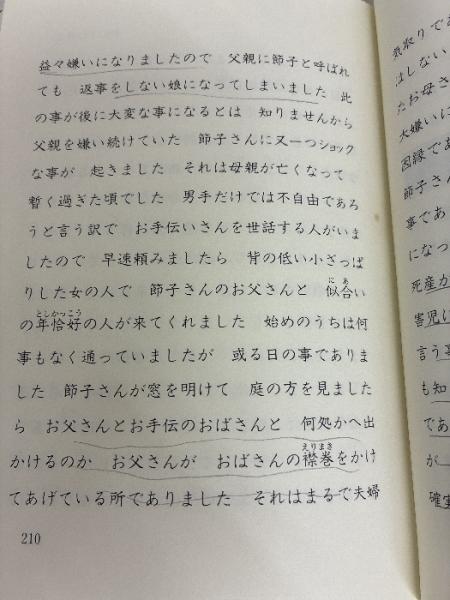 益々嫌いになりましたので　父親に節子と呼ばれ
ても　返事をしない娘になってしまいました　此
の事が後に大変な事になるとは　知りませんから
父親を嫌い続けていた　節子さんに又一つショック
な事が　起きました　それは母親が亡くなって
暫く過ぎた頃でした　男手だけでは不自由であろ
うと言う訳で　お手伝いさんを世話する人がいま
したので　早速頼みましたら　背の低い小さっぱ
りした女の人で　節子さんのお父さんと　似合い
の年恰好の人が来てくれました　始めのうちは何
事もなく通っていましたが　或る日の事でありま
した　節子さんが窓を明けて　庭の方を見ました
ら　お父さんとお手伝のおばさんと　何処かへ出
かけるのか　お父さんが　おばさんの襟巻をかけ
てあげている所でありました　それはまるで夫婦
210
気取りで
はしない
たお母さ
大嫌いに
因縁であ
節子さん
事であ
になっ
死産か
害児に
言う事
も知
であ
が
確実